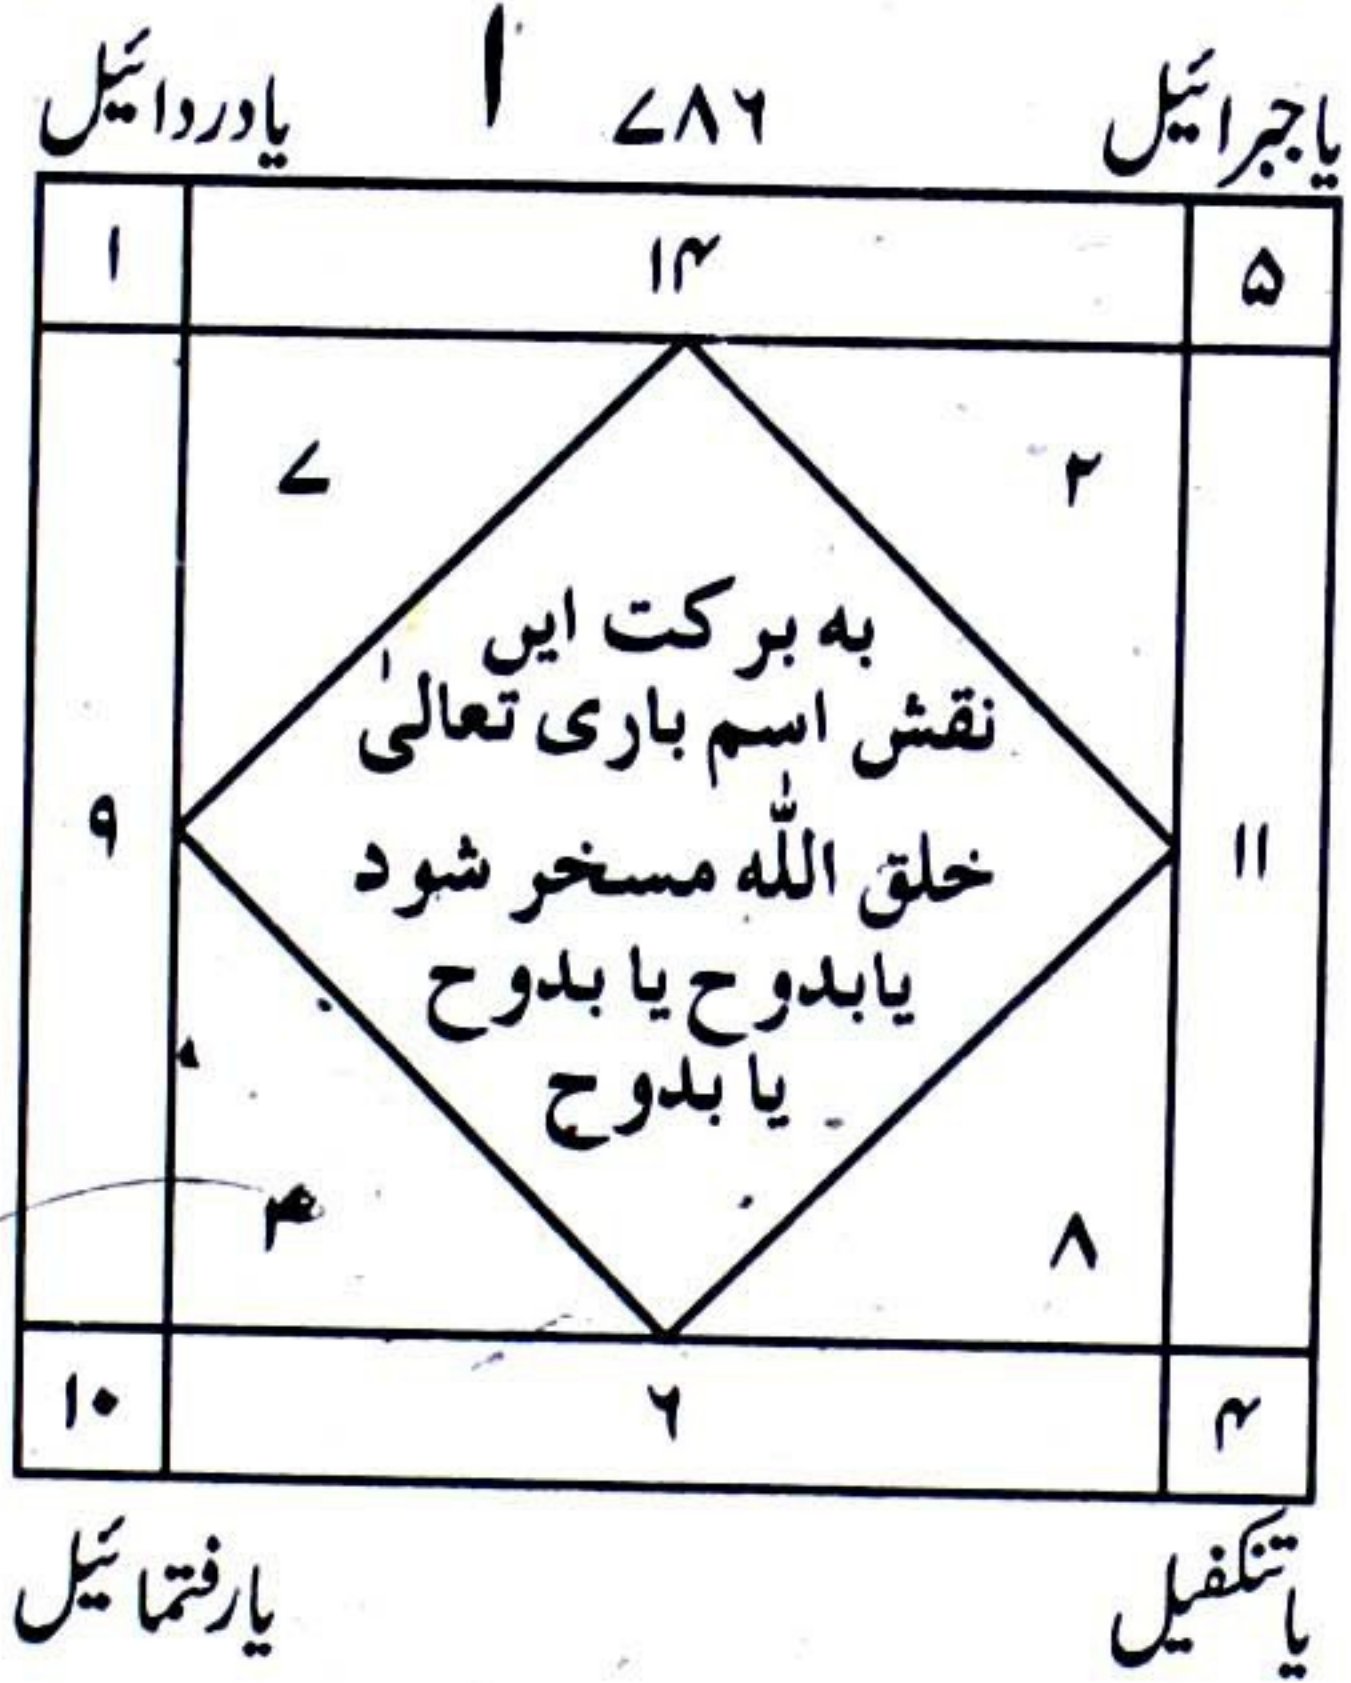 یاجبرائیل ۷۸۶ ا یادردائیل
۵ ۱۴ ۱
۲ ۷
به برکت ایں
نقش اسم باری تعالیٰ
۱۱ ۹
خلق اللّٰه مسخر شود
یابدوح یا بدوح
یا بدوح
۸
۴ ۶ ۱۰
یا تنکفیل یارفتمائیل